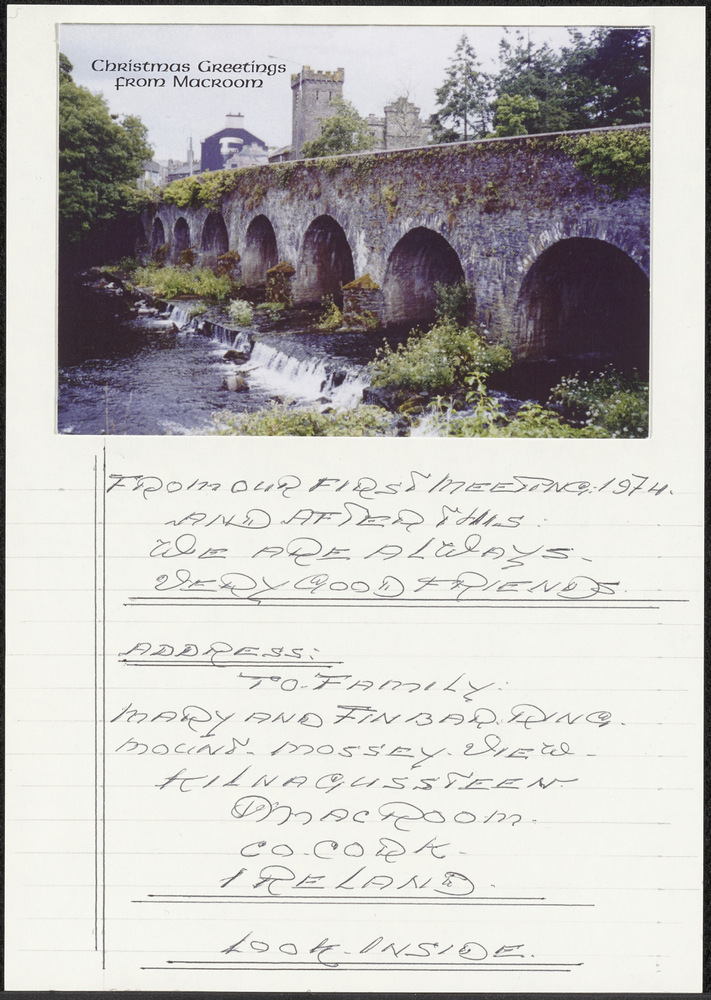 Christmas Greetings
from Macroom
FROM OUR FIRST MEETING: 1974.
AND AFTER THIS:
WE ARE ALWAYS-
VERY GOOD FRIENDS.
ADDRESS:
TO. FAMILY:
MARY AND FINBAR. RING.
MOUNT- MOSSEY- VIEW-
KILNAGUSSTEEN.
MACROOM.
CO. CORK-
IRELAND.
LOOK- INSIDE.